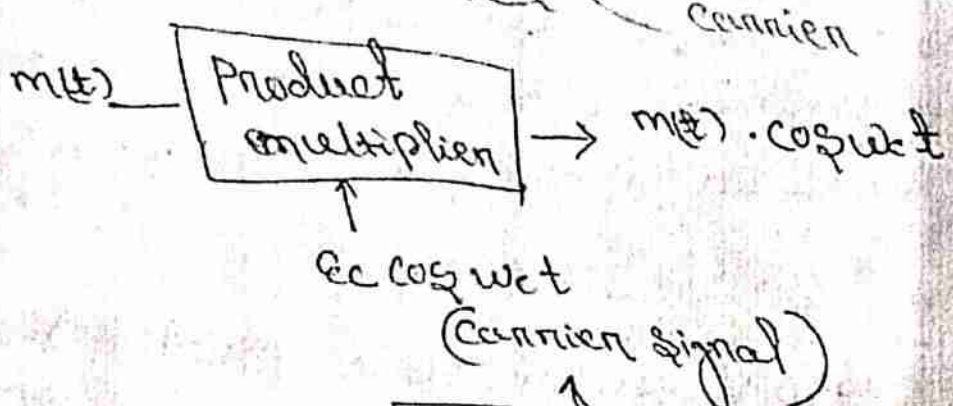 carrier
m(t)
Product
multiplier
m(t) . cos wct
Ec cos wct
(carrier signal)